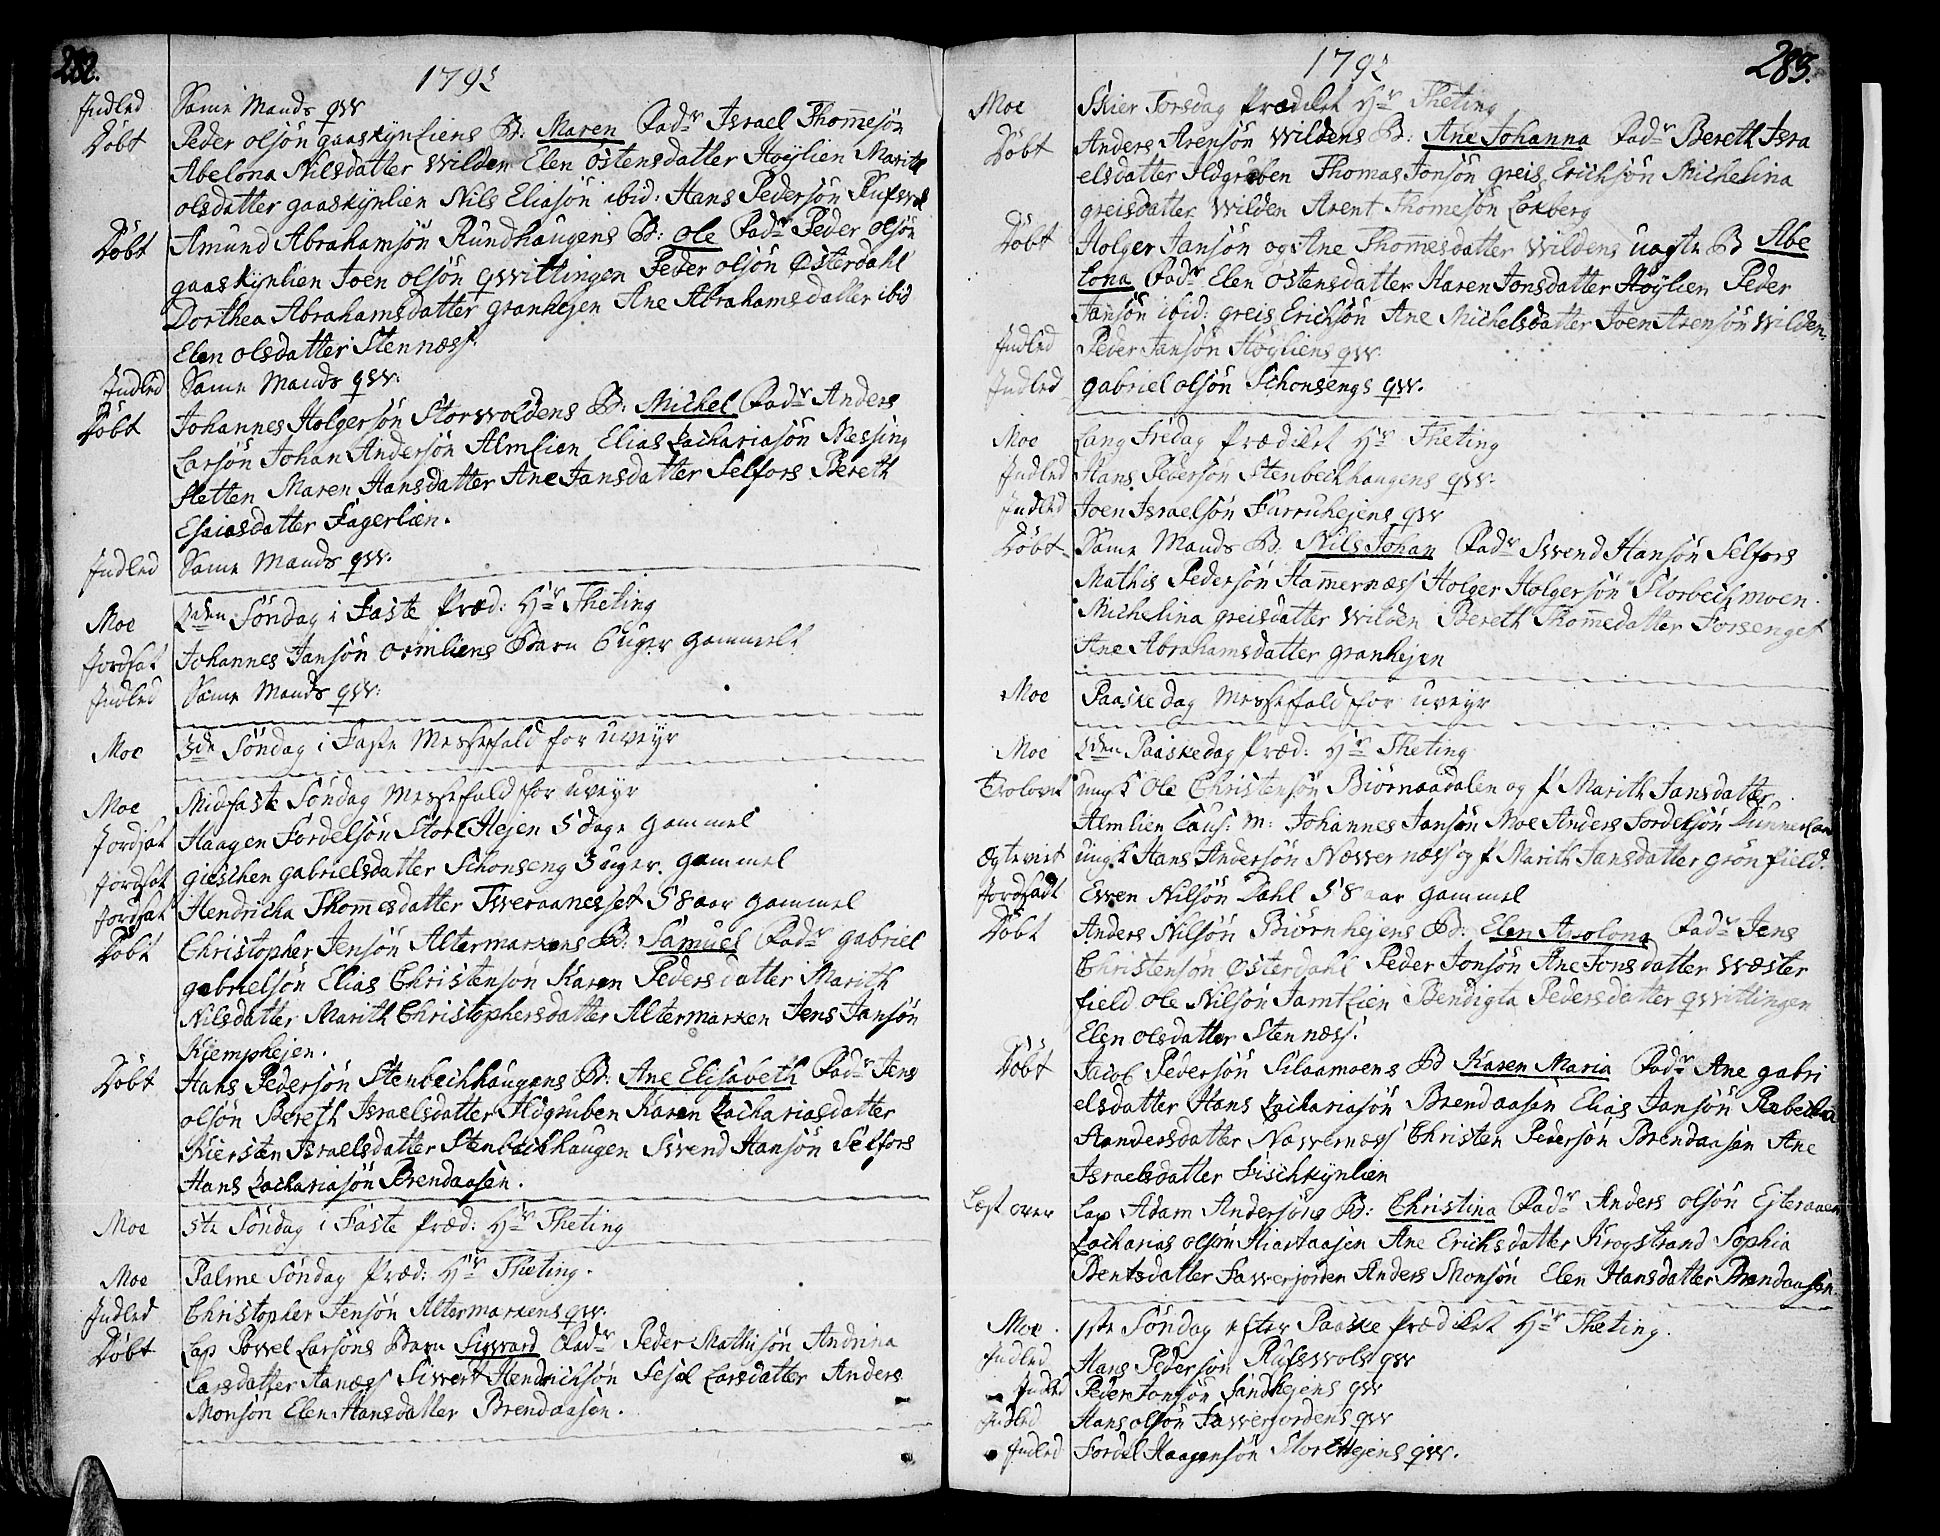 282.
1795
Indled Same Mands qvv
Døbt Peder olsön gaaskÿnliens B: Maren Fadr Israel Thommesön
Abelona Nilsdatter Wilden Elen Østensdatter Høÿlien Marith
olsdatter gaaskÿnlien Nils Eliasön ibid: Hans Pedersön Rufsvol
Døbt Amund Abrahamsön Rundhaugens B: ole Fadr Peder olsön
gaaskÿnlien Joen olsön qvvittingen Peder olsön Østerdahl
Dorthea Abrahamsdatter granhejen Ane Abrahamsdatter ibid
Elen olsdatter Stennæss.
Indled Same Mands qvv:
Døbt Johannes Holgersön Storvvoldens B: Michel Fadr Anders
Larsön Johan Andersön Almlien Elias Zachariasön Messing
sletten Maren Hansdatter Ane Jansdatter Selfors Bereth
Esaiasdatter Fagerlien.
Indled Same Mands qvv:
Moe 2den Söndag i Faste Præd: Hr Theting
Jordsat Johannes Jansön ormliens Barn 6 uger gammelt
Indled Same Mands qvv:
Moe 3de Söndag i Faste Messefald for uveÿr
Moe Midfaste Söndag Messefald for uveÿr
Jordsat Haagen Fordelsön Store Hejen 5 dage gammel
Jordsat gieschen gabrielsdatter Schonseng 3 uger gammel
Jordsat Hendricha Thommesdatter Tvveraanesset 58 aar gammel
Døbt Christopher Jensön Altermarkens B: Samuel Fadr gabriel
gabrielsön Elias Christensön Karen Pedersdatter Marith
Nilsdatter Marith Christophersdatter Altermarken Jens Jansön
Kiemphejen.
Døbt Hans Pedersön Stenbechhaugens B: Ane Elisabeth Fadr Jens
olsön Bereth Israelsdatter Ildgruben Karen Zachariasdatter
Kiersten Israelsdatter Stenbechhaugen Svvend Hansön Selfors
Hans Zachariasön Brendaasen.
Moe 5te Söndag i Faste Præd: Hr Theting
Moe Palme Söndag Præd: Hr Theting.
Indled Christopher Jensön Altermarkens qvv.
Døbt Lap Povvel Larsöns Barn Sivvard Fadr Peder Mathisön Andrina
Larsdatter Aanæss Sivvert Hendrichsön Sesel Larsdatter Anders
Monsön Elen Hansdatter Brendaasen.
283.
1795
Moe Skier Torsdag Prædiket Hr Theting
Døbt Anders Arensön Wildens B: Ane Johanna Fadr Bereth Isra
elsdatter Ildgruben Thomas Jonsön greis Erichsön Michelina
greisdatter Wilden Arent Thomesön Laxberg
Døbt Holger Jansön og Ane Thommesdatter Wildens uægte B Abe
lona Fadr Elen Østensdatter Karen Jonsdatter Høÿlien Peder
Jansön ibid: greis Erichsön Ane Michelsdatter Joen Arensön Wilden
Indled Peder Jansön Høÿliens qvv
Indled gabriel olsön Schonsengs qvv.
Moe Lang Fredag Prædiket Hr Theting
Indled Hans Pedersön Stenbechhaugens qvv.
Indled Joen Israelsön Furruhejens qvv
Døbt Same Mands B. Nils Johan Fadr Svvend Hansön Selfors
Mathis Pedersön Hamernæss Holger Holgersön Storbechmoen
Michelina greisdatter Wilden Bereth Thommedatter Forsenget
Ane Abrahamsdatter granhejen
Moe Paaske dag Messefald for uveÿr
Moe 2den Paaskedag Præd: Hr Theting
Trolovet ungk Ole Christensön Biörnaadalen og p: Marith Jansdatter
Almlien Caus: M: Johannes Jansön Moe Anders Fordelsön Dunnerlan
Egteviet ungk Hans Andersön Navvernæss og p: Marith Jansdatter grönfield
Jordsadt Evven Nilsön Dahl 58 aar gammel
Døbt Anders Nilsön Biörnhejens B: Elen Apolona Fadr Jens
Christensön Østerdahl Peder Jonsön Ane Jonsdatter Wæster
field Ole Nilsön Jamtlien Bendigta Pedersdatter qvvittingen
Elen olsdatter Stennæss.
Døbt Jacob Pedersön Silaamoens B Karen Maria Fadr Ane gabri
elsdatter Hans Zachariasön Brendaasen Elias Jansön Rebecka
Andersdatter Navvernæss Christen Pedersön Brendaasen Ane
Israelsdatter Fischkÿnlien
Læst over Lap Adam Andersöns B: Christina Fadr Anders olsön Ejteraaen
Zacharias olsön Miartaasen Ane Erichsdatter Krogstrand Sophia
Bentsdatter Favverjorden Anders Monsön Elen Hansdatter Brendaasen
Moe. 1ste Söndag efter Paaske Prædiket Hr Theting.
Indled Hans Pedersön Rufsvvols qvv
Indled Peder Jonsön Sandhejens qvv
Indled Hans olsön Favverjordens qvv
Indled Fordel Haagensön StoreHejens qvv.